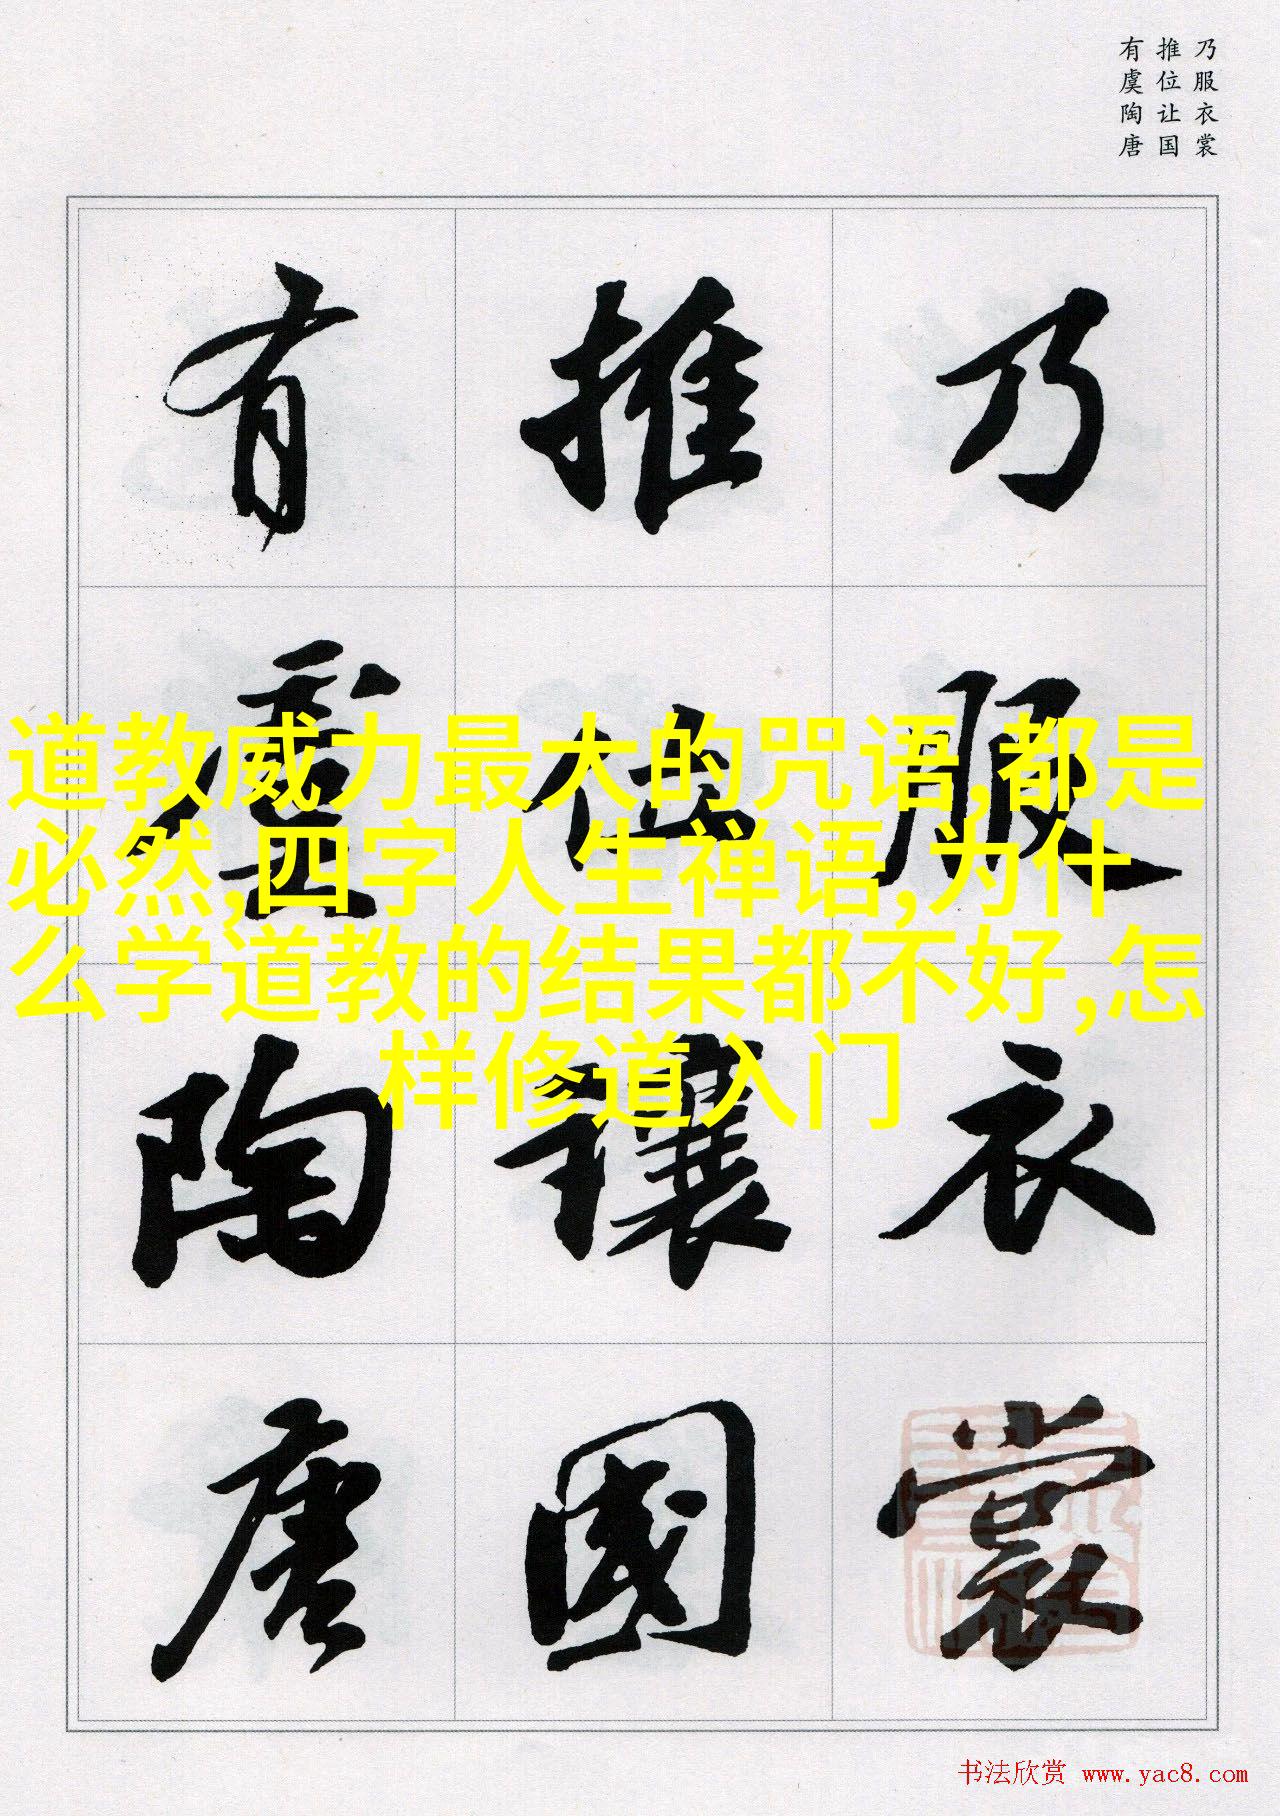 乃服衣裳
推位让国
有虞陶唐
乃服衣裳
推位讓國
有虞陶唐
道教威力最大的咒语,都是
必然,四字人生禅语,为什
么学道教的结果都不好,怎
样修道入门
书法欣赏 www.yac8.com